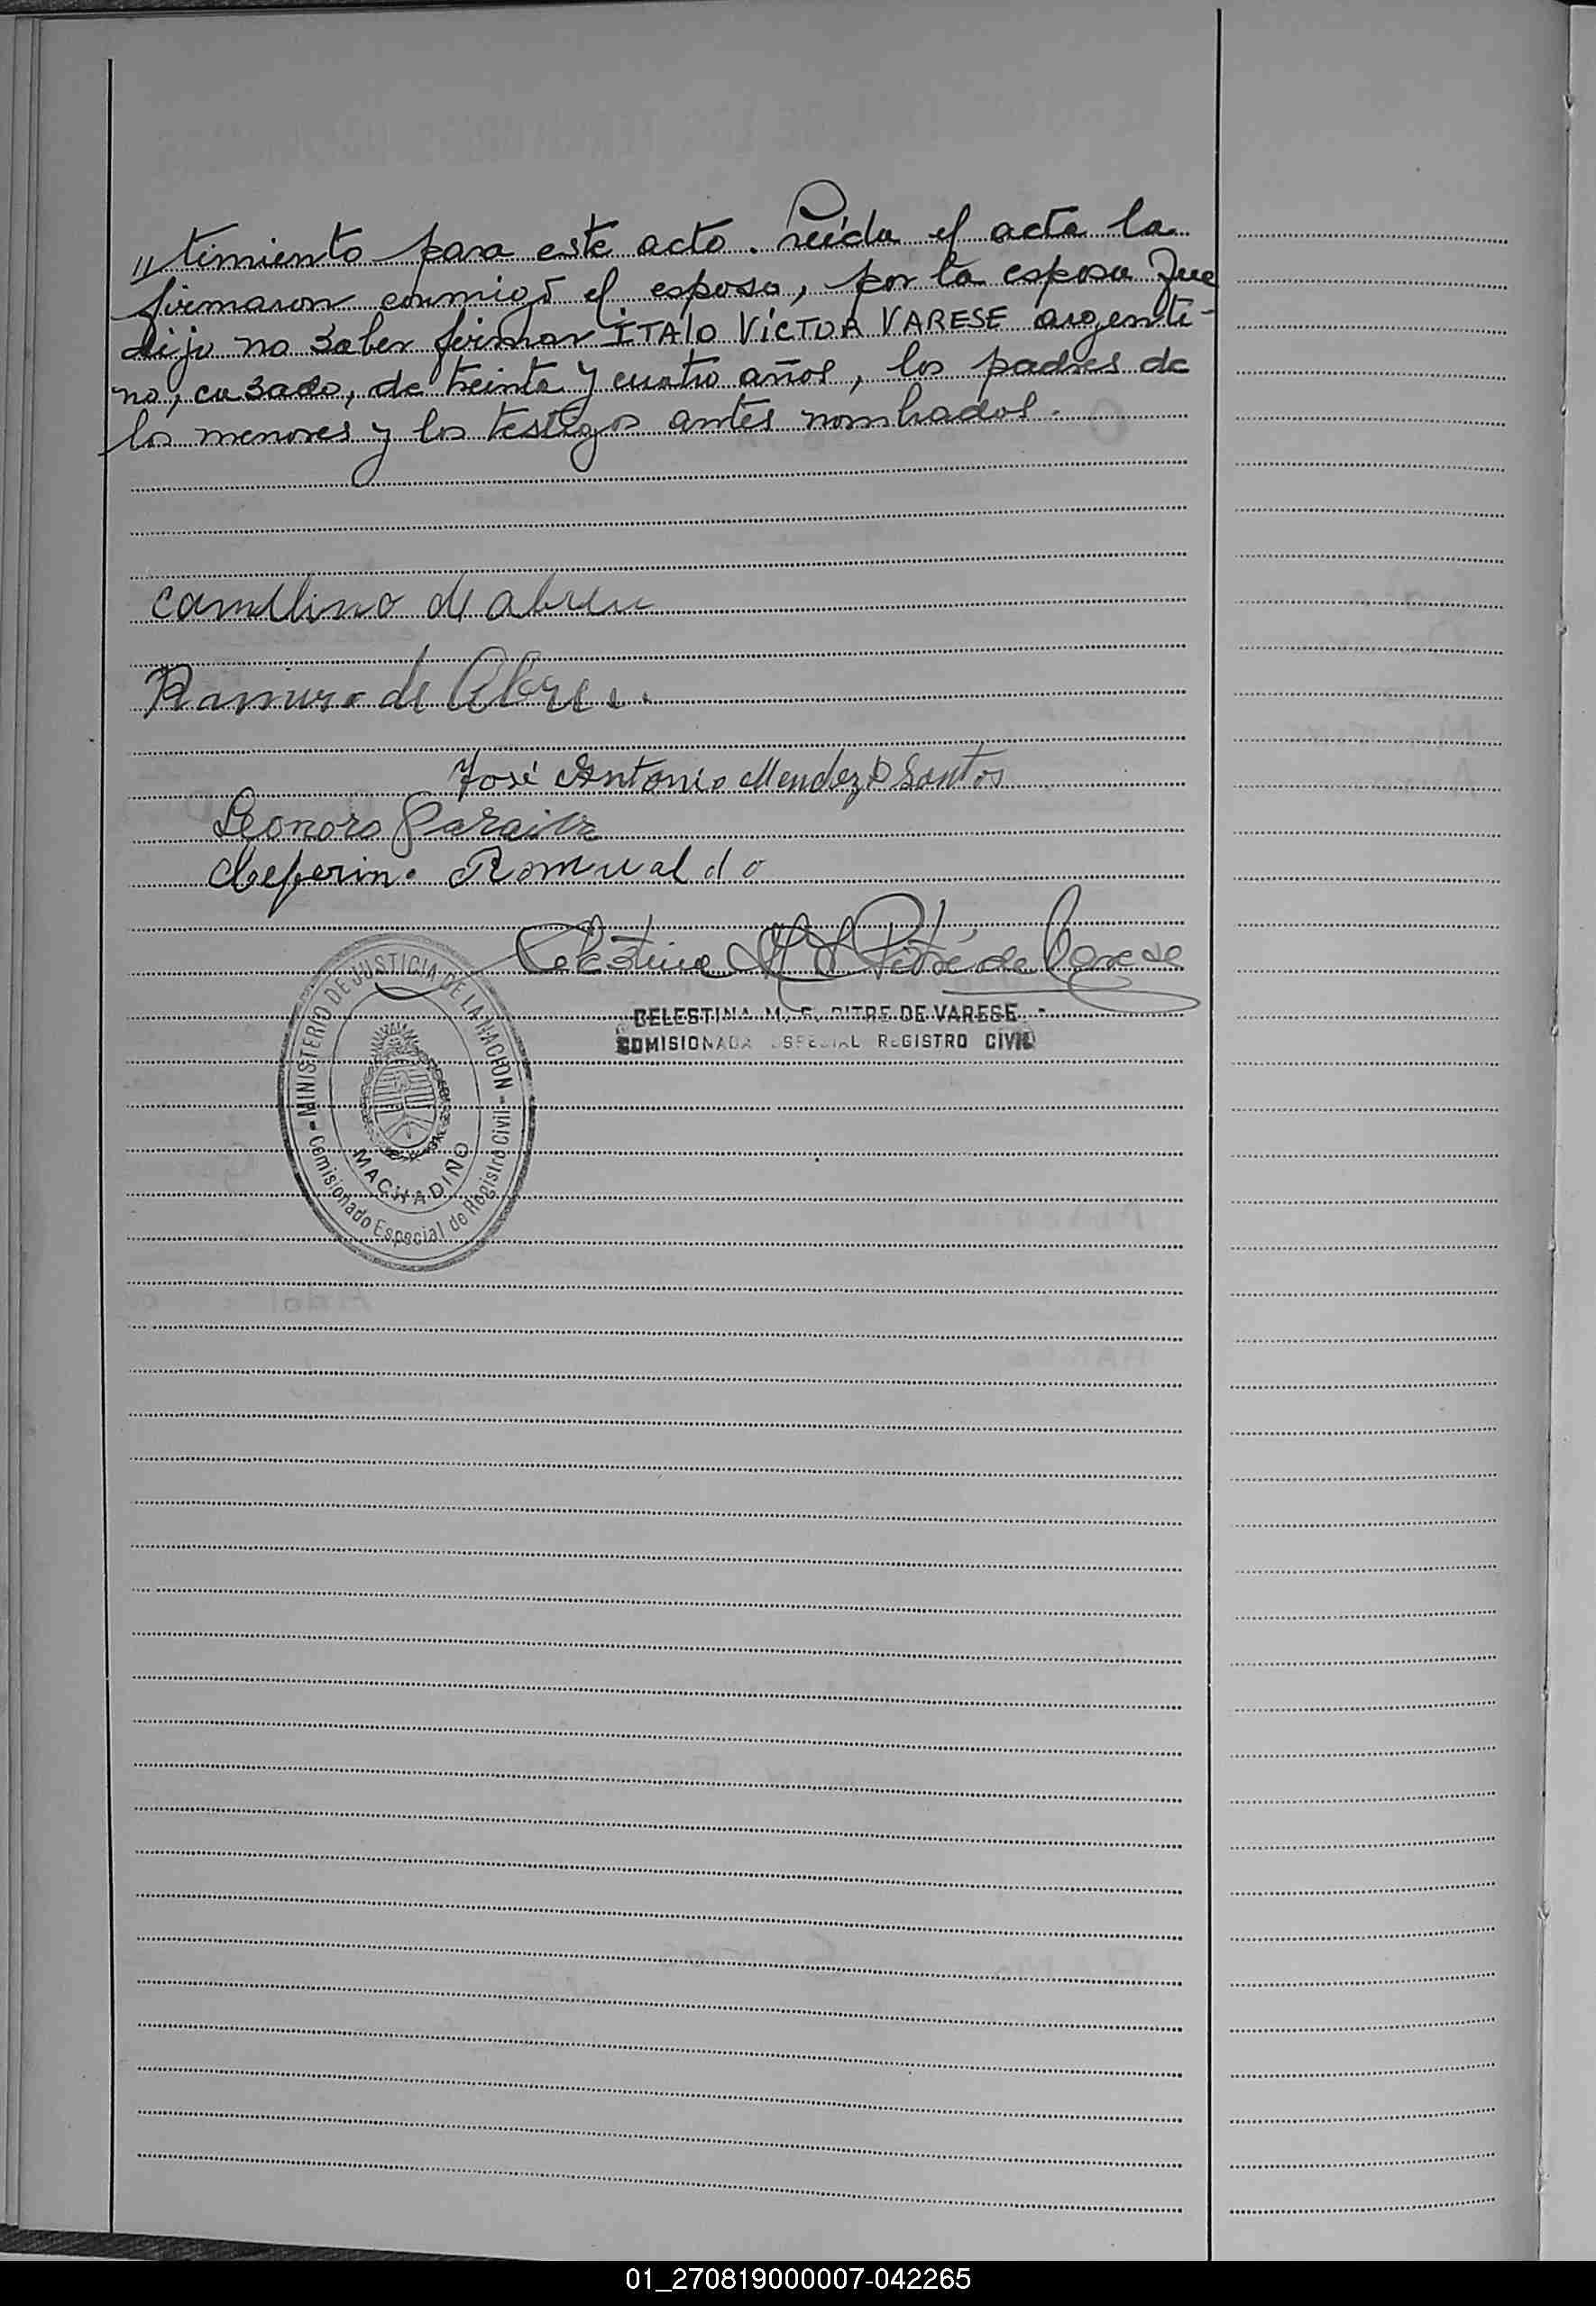 "timiento para este acto. Leída el acta la
firmaron conmigo el esposo, por la esposa que
dijo no saber firmar ITALO VÍCTOR VARESE argenti-
no, casado, de treinta y cuatro años, los padres de
los menores y los testigos antes nombrados.
Camillino de abreu
Ramiro de Abreu
José Antonio Mendez D Santos
Leonora
Ceferino Romualdo
Celestina M E Pitré de Varese
CELESTINA M. E. PITRE DE VARESE
COMISIONADA ESPECIAL REGISTRO CIVIL
- MINISTERIO DE JUSTICIA DE LA NACION -
MACHADIÑO
Comisionado Especial de Registro Civil
01_270819000007-042265